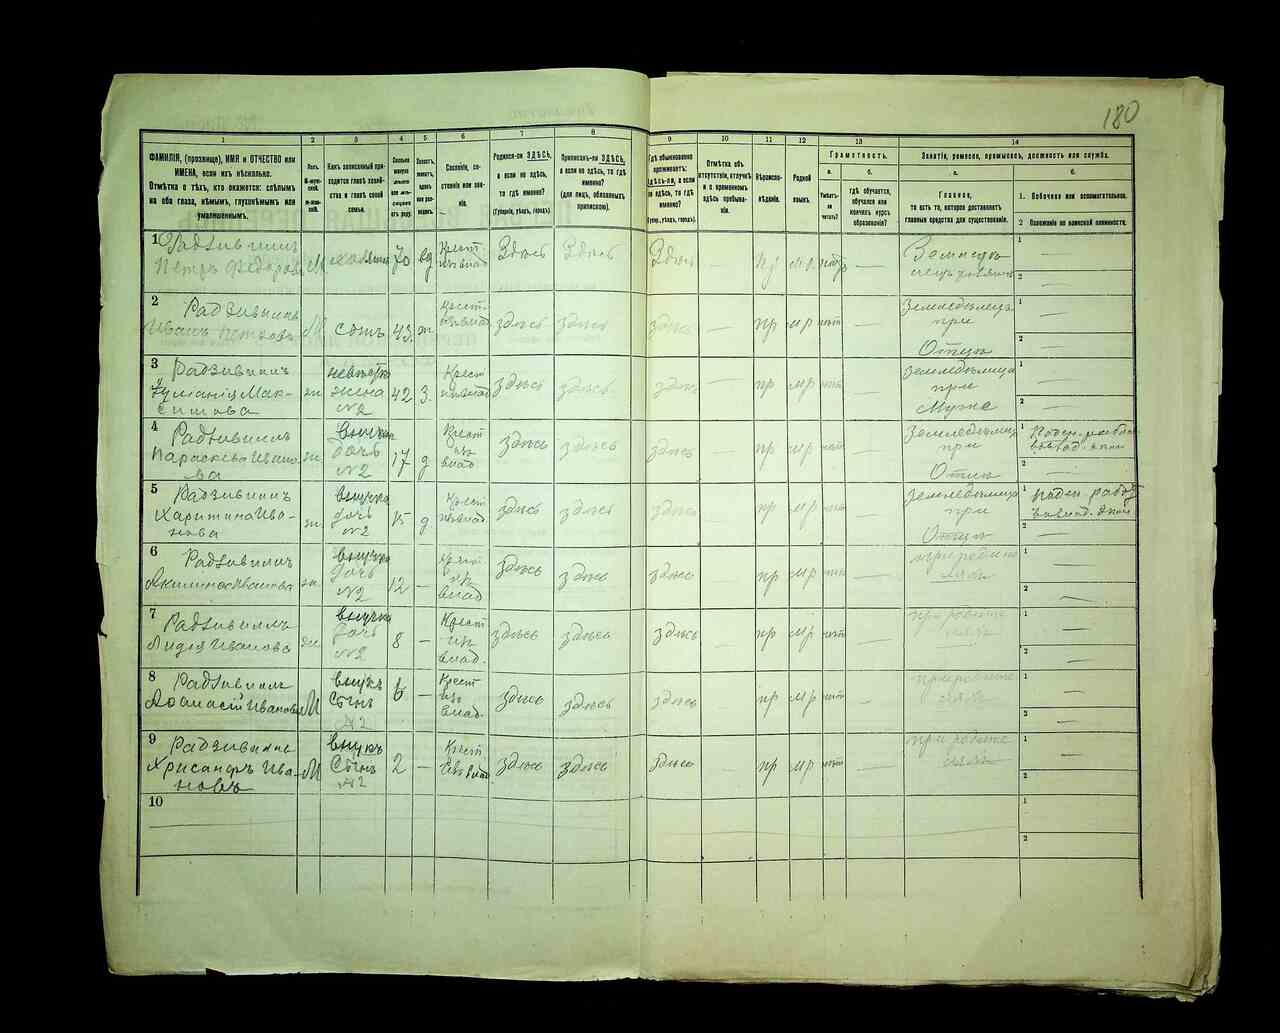 180
1 2 3 4 5 6 7 8 9 10 11 12 13 14
ФАМИЛІЯ, (прозвище), ИМЯ и ОТЧЕСТВО или
ИМЕНА, если ихъ нѣсколько.
Отмѣтка о тѣхъ, кто окажется: слѣпымъ
на оба глаза, нѣмымъ, глухонѣмымъ или
умалишеннымъ.
Полъ.
Какъ записанный при-
ходится главѣ хозяй-
ства и главѣ своей
семьи.
Сословіе, со-
стояніе или зва-
ніе.
Родился-ли ЗДѢСЬ,
а если не здѣсь,
то гдѣ именно?
(Губернія, уѣздъ, городъ).
Приписанъ-ли ЗДѢСЬ,
а если не здѣсь, то гдѣ
именно?
(для лицъ, обязанныхъ
припискою).
Гдѣ обыкновенно
проживаетъ:
здѣсь-ли, а если
не здѣсь, то гдѣ
именно?
(Губер., уѣздъ, городъ).
Отмѣтка объ
отсутствіи, отлучкѣ
и о временномъ
здѣсь пребыва-
ніи.
Вѣроиспо-
вѣданіе.
Родной
языкъ.
Грамотность.
а. б.
Умѣетъ-ли
читать?
гдѣ обучается,
обучался или
кончилъ курсъ
образованія?
Занятіе, ремесло, промыселъ, должность или служба.
а. б.
Главное,
то есть то, которое доставляетъ
главныя средства для существованія.
1. Побочное или вспомогательное.
2 Положеніе по воинской повинности.
1 Радзивилъ
Петръ Федоровъ М хозяинъ 70 вд Крест Здѣсь Здѣсь Здѣсь — пр мр — 1 —
2 —
2 Радзивилъ
Иванъ Петровъ М сынъ 43 ж Крест здѣсь здѣсь здѣсь — пр мр нѣтъ — при
Отцѣ 1 —
2 —
3 Радзивилъ
Максимова ж невѣстка
жена
№2 42 З. Крест
здѣсь здѣсь здѣсь — пр мр нѣтъ — при
Мужѣ 1 —
2 —
4 Радзивилъ
Параскева Ивано-
ва ж внучка
дочь
№2 17 д Крест
изъ
влад здѣсь здѣсь здѣсь — пр мр нѣтъ — при
Отцѣ 1
2 —
5 Радзивилъ
Харитина Ива-
нова ж внучка
дочь
№2 15 д Крест
здѣсь здѣсь здѣсь — пр мр нѣтъ — при
Отцѣ 1
2 —
6 Радзивилъ
Акилина Иванова ж внучка
дочь
№2 12 — Крест
изъ
влад здѣсь здѣсь здѣсь — пр мр нѣтъ — при родите
ляхъ 1 —
2 —
7 Радзивилъ
Лидія Иванова ж внучка
дочь
№2 8 — Крест
изъ
влад. здѣсь здѣсь здѣсь — пр мр нѣтъ — при родите
ляхъ 1 —
2 —
8 Радзивилъ
Афанасій Ивановъ М внукъ
Сынъ
№2 6 — Крест
изъ
влад. здѣсь здѣсь здѣсь — пр мр нѣтъ — при родите
ляхъ 1 —
2 —
9 Радзивилъ
Хрисанфъ Ива-
новъ М внукъ
Сынъ
№2 2 — Крест
здѣсь здѣсь здѣсь — пр мр нѣтъ — при родите
ляхъ 1 —
2 —
10 1
2